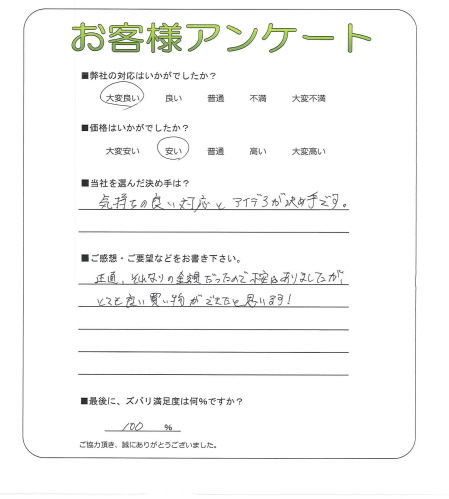 お客様アンケート
■弊社の対応はいかがでしたか？
大変良い 良い 普通 不満 大変不満
■価格はいかがでしたか？
大変安い 安い 普通 高い 大変高い
■当社を選んだ決め手は？
気持ちの良い対応と アイデアが決め手です。
■ご感想・ご要望などをお書き下さい。
正直、それなりの金額だったので不安はありましたが、
とても良い買い物ができたと思います！
■最後に、ズバリ満足度は何％ですか？
100 ％
ご協力頂き、誠にありがとうございました。